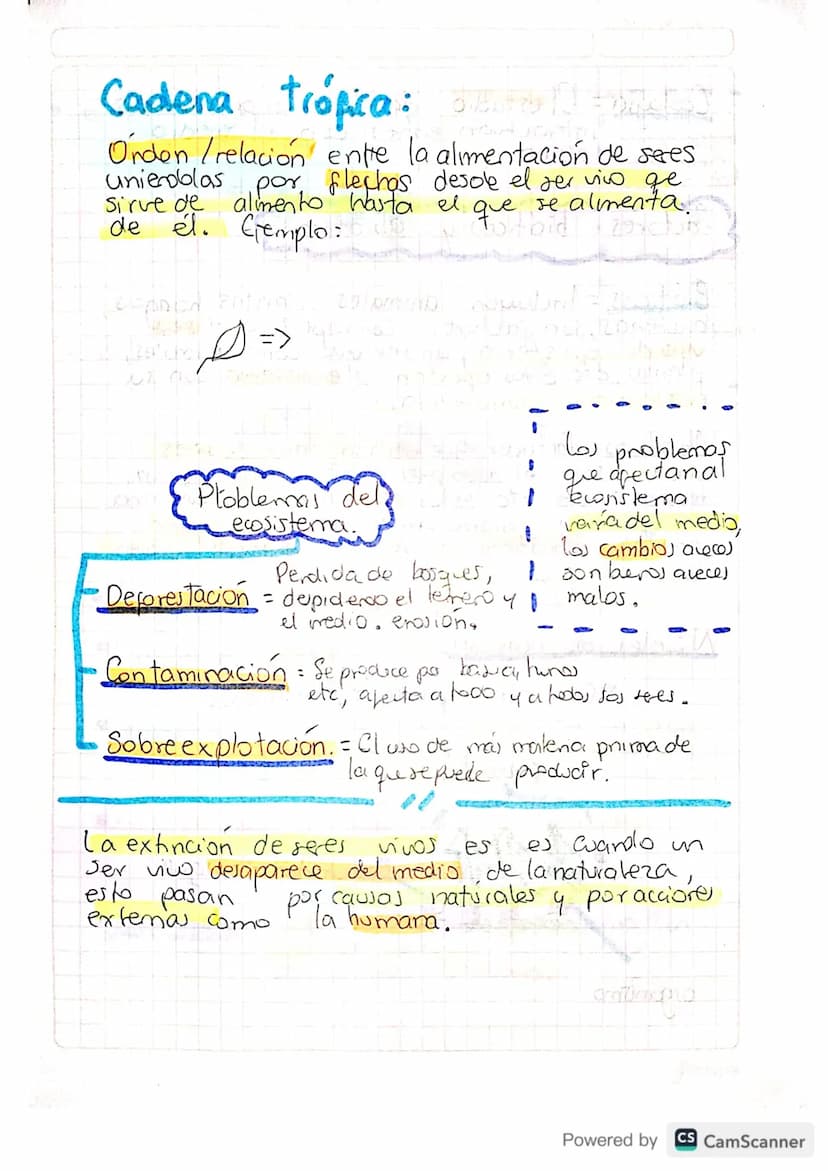 Cadena trópica:
Orden/relación entre la alimentación de seres
uniendolas por flechas desde el ser vivo que
sirve de alimento hasta el que se alimenta.
de él. Ejemplo:
=>
Problemas del
ecosistema.
Los problemas
que afectan al
ecosistema
varía del medio,
los cambios aveces
son buenos aveces
malos.
Perdida de bosques,
Deforestación = depidiendo el terreno y
el medio. erosión.
Contaminación = Se produce por basura, humos
etc, afecta a todo y a todos los seres.
Sobreexplotación. = El uso de más materia prima de
la que se puede producir.
La extinción de seres vivos es es cuando un
ser vivo desaparece del medio de la naturaleza,
esto pasan por causas naturales y por acciones
externas como la humana.
Powered by CS CamScanner